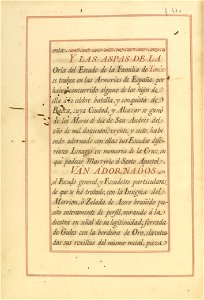 Y LAS ASPAS DE LA
Orla del Escudo de la Familia de
se traxen en las Armerias de España por
haverse concurrido alguno de los hijos de
ella á la celebre batalla, y conquista de
Baeza, cuya Ciudad, y Alcazar se ganó
de los Moros el dia de San Andrés del
año de mil doscientos, veinte, y siete, habi-
endo adornado con ellas sus Escudos dife-
rentes Linages en memoria de la Cruz, en
que padeció Martyrio el Santo Apostol.
VAN ADORNADOS
el Escudo general, y Escudetes particulares
de que se há tratado, con la Insignia del
Morrion, ó Zelada de Acero bruñido pu-
esto enteramente de perfil, mirando a la
diestra en señal de su legitimidad, forrada
de Gules con la bordura de Oro, claveteá-
das sus rexillas del mismo metal, pieza